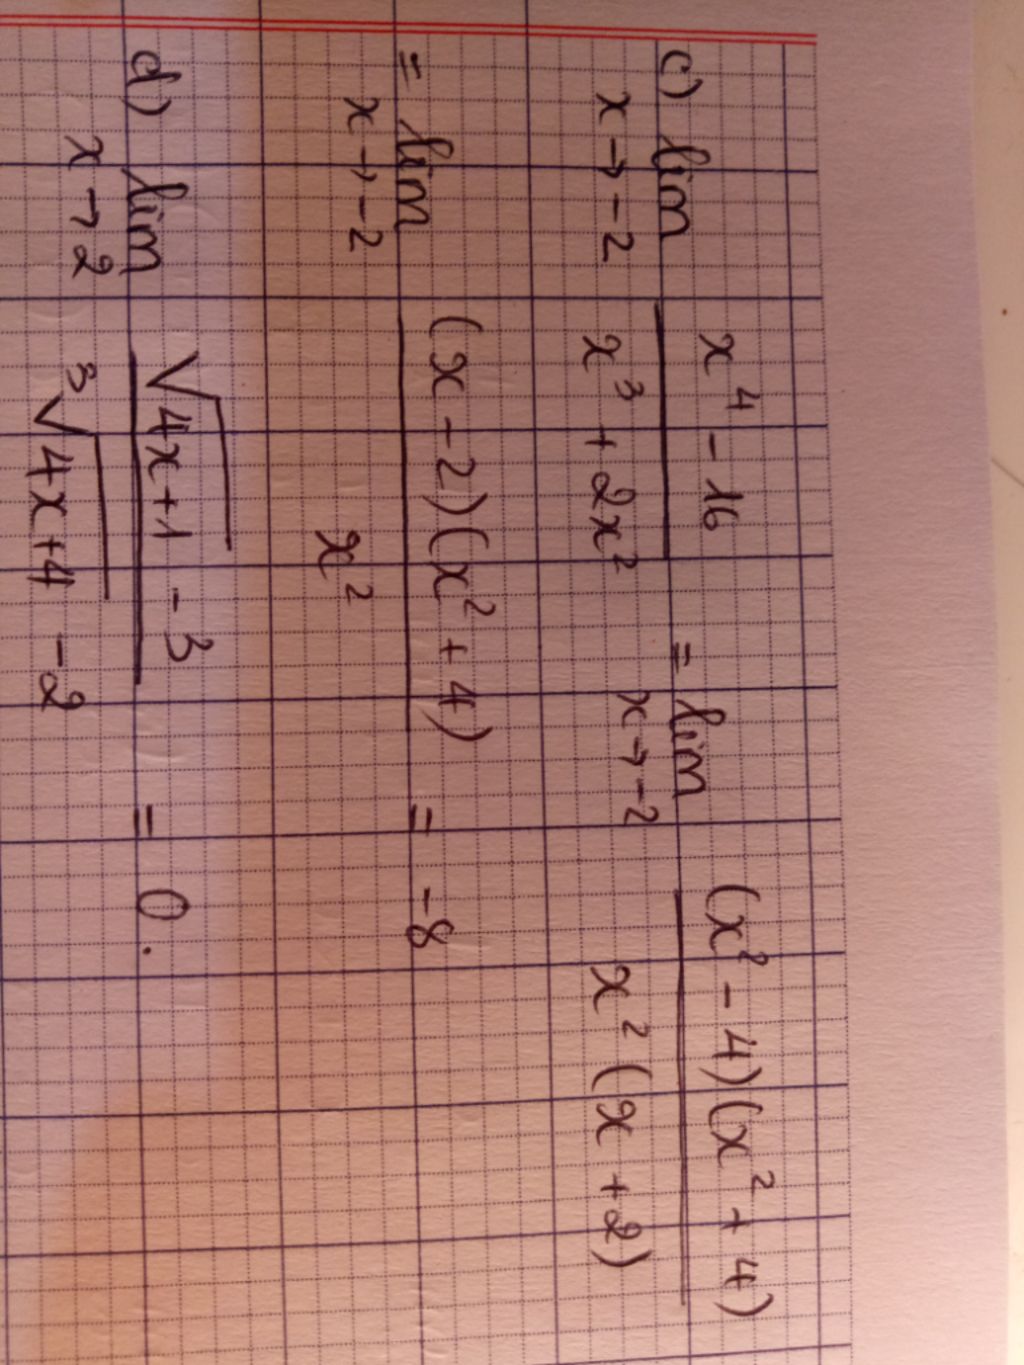 c) lim x→-2 (x⁴ - 16)/(x³ + 2x²) = lim x→-2 ((x² - 4)(x² + 4))/(x²(x + 2))
= lim x→-2 ((x - 2)(x² + 4))/x² = -8
d) lim x→2 (√(4x+1) - 3)/(³√(4x+4) - 2) = 0.